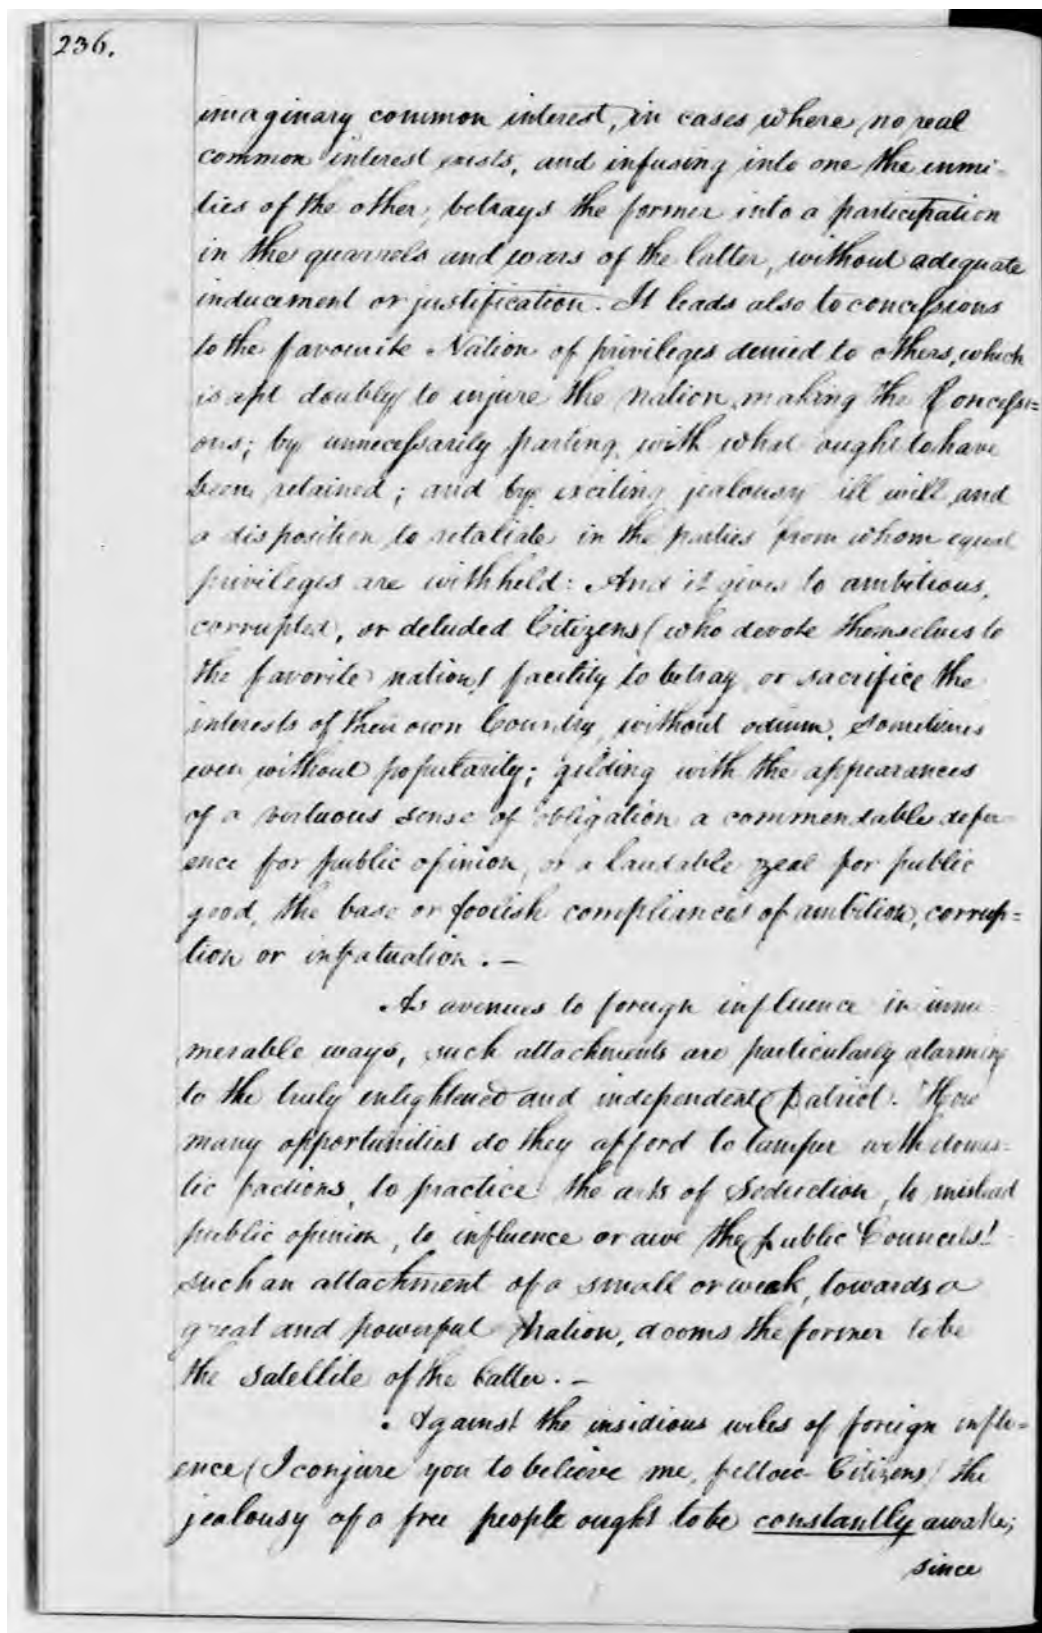 236.
imaginary common interest, in cases where no real
common interest exists, and infusing into one the enmi-
ties of the other, betrays the former into a participation
in the quarrels and wars of the latter, without adequate
inducement or justification. It leads also to concessions
to the favourite Nation of privileges denied to others, which
is apt doubly to injure the nation making the Concessi=
ons; by unnecessarily parting with what ought to have
been retained; and by exciting jealousy ill will and
a disposition to retaliate in the parties from whom equal
privileges are withheld: And it gives to ambitious,
corrupted, or deluded Citizens (who devote themselves to
the favorite nation) facility to betray or sacrifice the
interests of their own Country, without odium, sometimes
even without popularity; gilding with the appearances
of a virtuous sense of obligation a commendable defer-
ence for public opinion, or a laudable zeal for public
good, the base or foolish compliances of ambition, corrup=
tion or infatuation. —
As avenues to foreign influence in innu-
merable ways, such attachments are particularly alarming
to the truly enlightened and independent Patriot. How
many opportunities do they afford to tamper with domes-
tic factions, to practice the arts of Seduction, to mislead
public opinion, to influence or awe the public Councils!
such an attachment of a small or weak, towards a
great and powerful Nation, dooms the former to be
the satellite of the latter. —
Against the insidious wiles of foreign influ=
ence (I conjure you to believe me, fellow-Citizens) the
jealousy of a free people ought to be constantly awake;
since